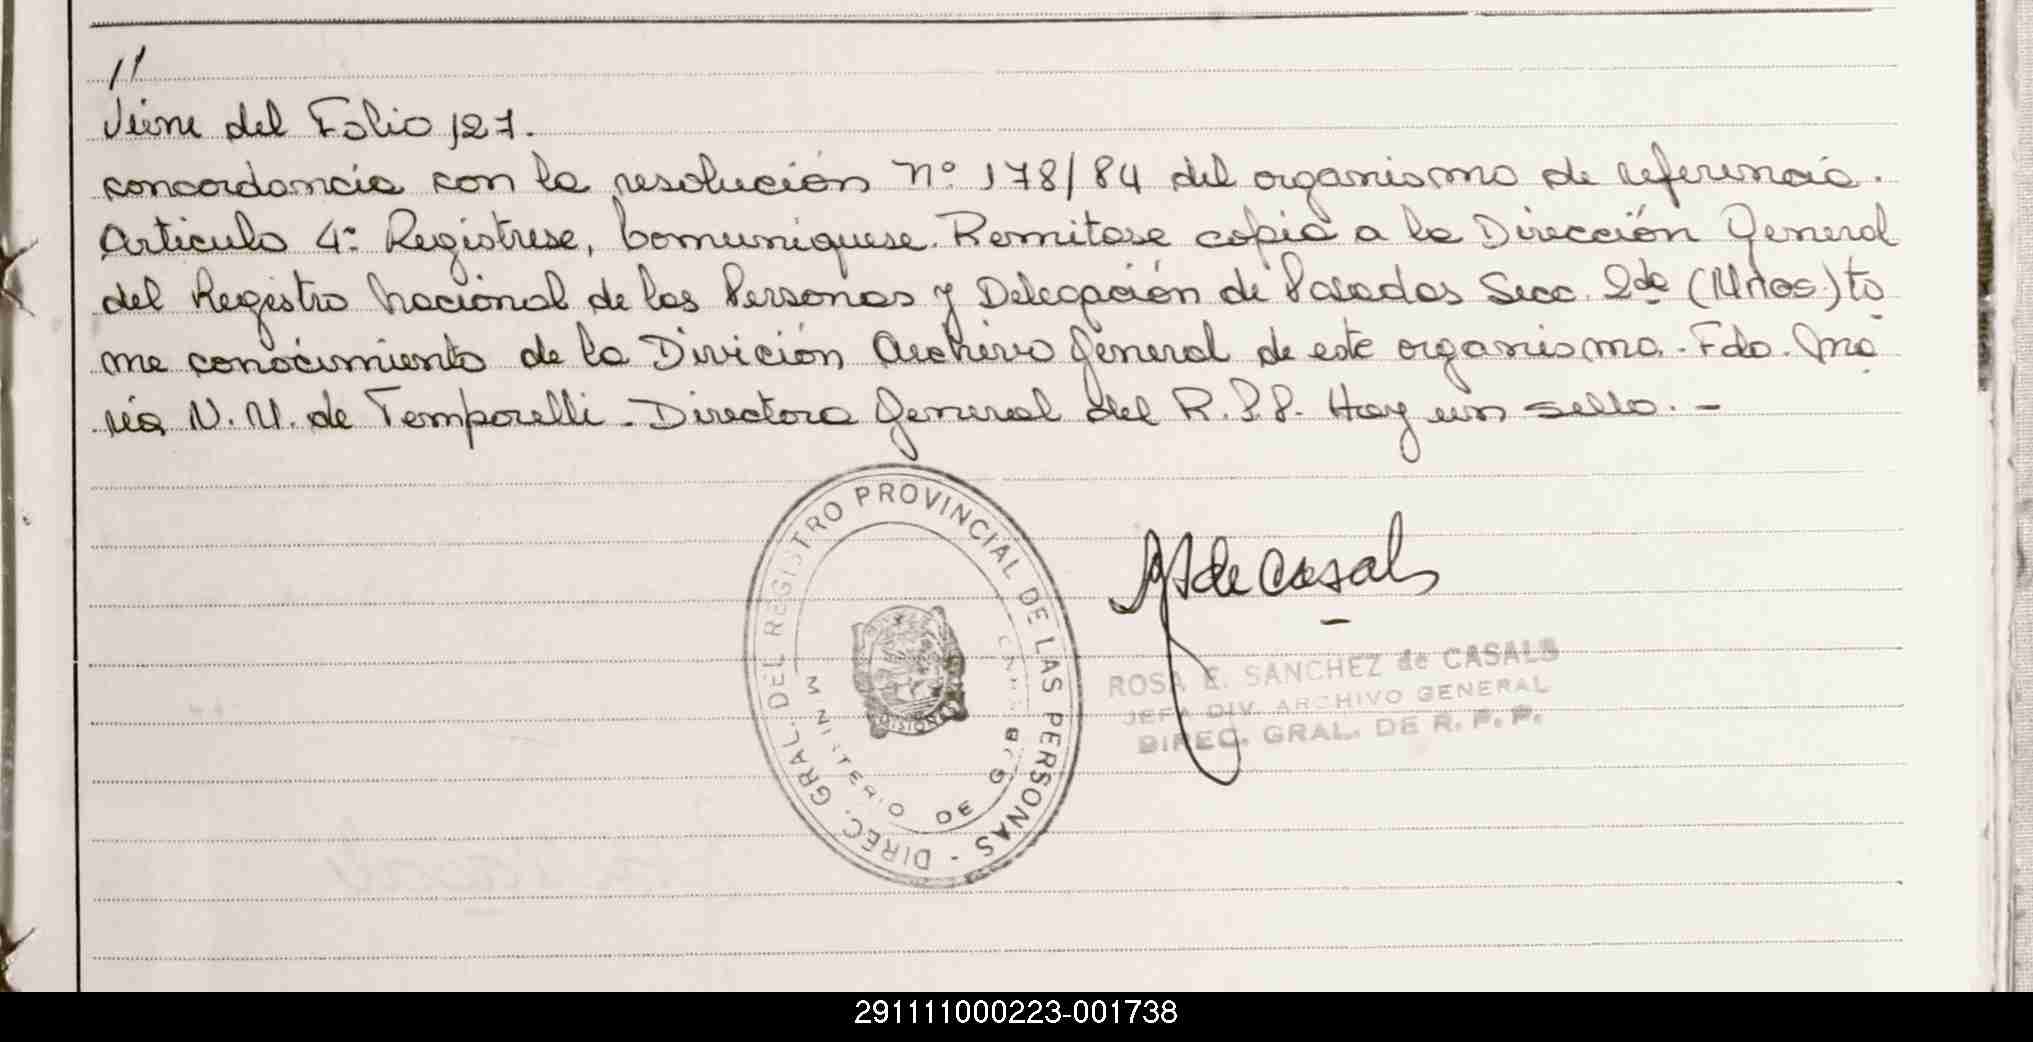 //
Viene del Folio 127.
concordancia con la resolución nº 178/84 del organismo de referencia.
Articulo 4º Registrese, Comuniquese. Remitase copia a la Dirección General
del Registro Nacional de las Personas y Delegación de Posadas Secc. 2da (Mnes.) to
me conocimiento de la Divición Archivo General de este organismo. Fdo. Ma
ria N. U. de Temporelli - Directora General del R.P.P. Hay un sello. -
DIREC. GRAL. DEL REGISTRO PROVINCIAL DE LAS PERSONAS -
MINISTERIO DE GOBIERNO
MISIONES
de Casals
ROSA E. SANCHEZ de CASALS
JEFA DIV. ARCHIVO GENERAL
DIREC. GRAL. DE R. P. P.
291111000223-001738